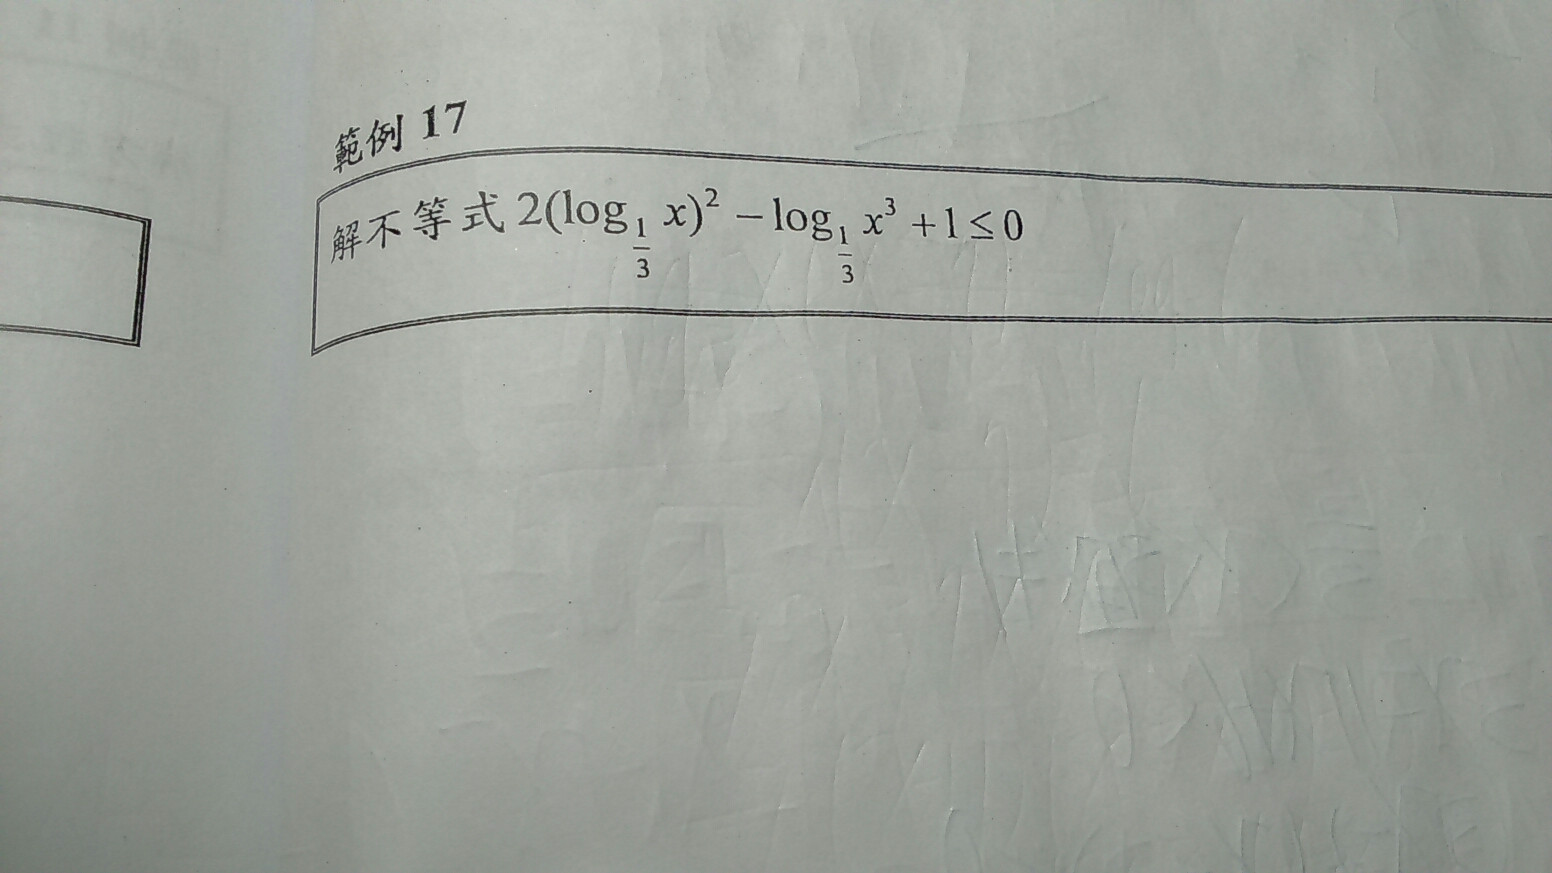 範例 17
解不等式 2(log_{\frac{1}{3}} x)^2 − log_{\frac{1}{3}} x^3 + 1 ≤ 0